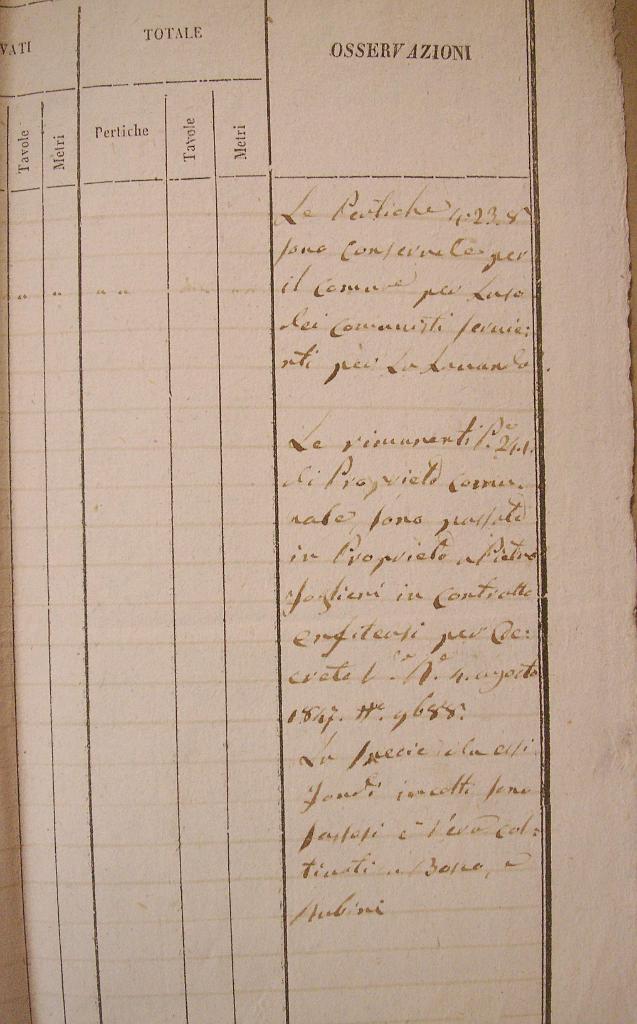 VATI
TOTALE
OSSERVAZIONI
Tavole
Metri
Pertiche
Tavole
Metri
Le Pertiche 4.23.8
sono conservate per
il comune per Luso
dei comunisti servie:
nti per La Lavanda.
Le rimanenti P.e 24.1.
di Proprietà comu:
nale, sono passate
in Proprietà a Pietro
in Contratto
enfiteusi per De:
creto 4. agosto
1847. N.o 9688.
La specie
fondi incolti sono
e
tivati a Bosco, e
Rubini